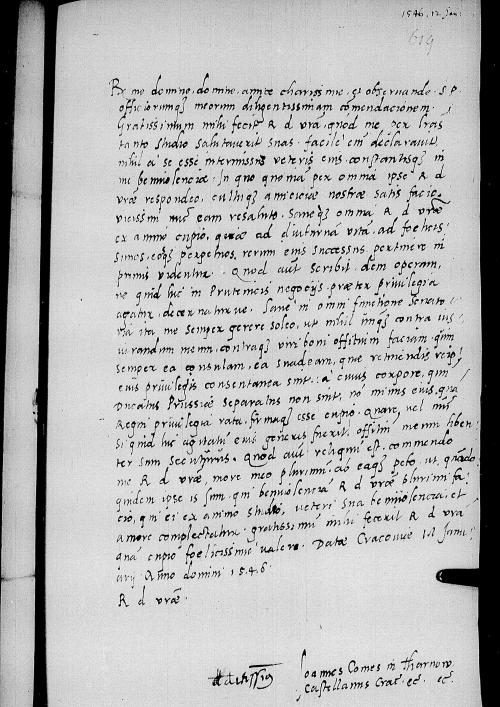 1546, 12 Jan.
614
R me domine, domine, amice charissime, et observande. S. P.
officiorumq meorum diligentissimam comendacionem.
Gratissimum mihi fecit R d vra, quod me per lras
tanto studio salutaverit suas. facile em declaravit,
nihil a se esse intermissum veteris eius, constantisq in
me benivolenciae. In quo quoniam per omnia ipse R d
vrae respondeo, cultuiq amiciciae nostrae satis facio,
vicissim eam resaluto. Saneq omnia R d vrae
ex animo cupio, quae ad diuturna vitam, ad foelicis
simos, eosq perpetuos, rerum eius successus pertinere in
primis videntur. Quod aut scribit, dem operam,
ne quid hic in Prutenicis negocijs, praeter privilegia
agatur, decernaturve. Sane in omni functione senato
ria ita me semper gerere soleo, ut nihil unq contra ius
iurandum meum, contraq viri boni officium faciam. quin
semper ea consulam, ea suadeam, que retinendis reip
eiusq privilegijs consentanea sint. a cuius corpore, quum
Ducatus Prussiae separatus non sit, no minus eius, qua
Regni privilegia rata, firmaq esse cupio. Quare, vel nunc
si quid hic agitatum eius generis fuerit, officium meum liben
ter sum secuturus. Quod aut reliquum est, commendo
me R d vrae, more meo plurimum, ab eaq peto, ut quando
quidem ipse is sum, qui benivolencia R d vrae plurimi fa
cio, qui ei ex animo studeo, veteri sua benivolencia, et
amore complectatur. gratissimu mihi fecerit R d vra
qua cupio foelicissime valere. Datae Cracoviae 12 Janu
arij Anno domini 1546.
R d vrae.
Ioannes Comes in Tharnow
Castellanus Crac. ec. ec.